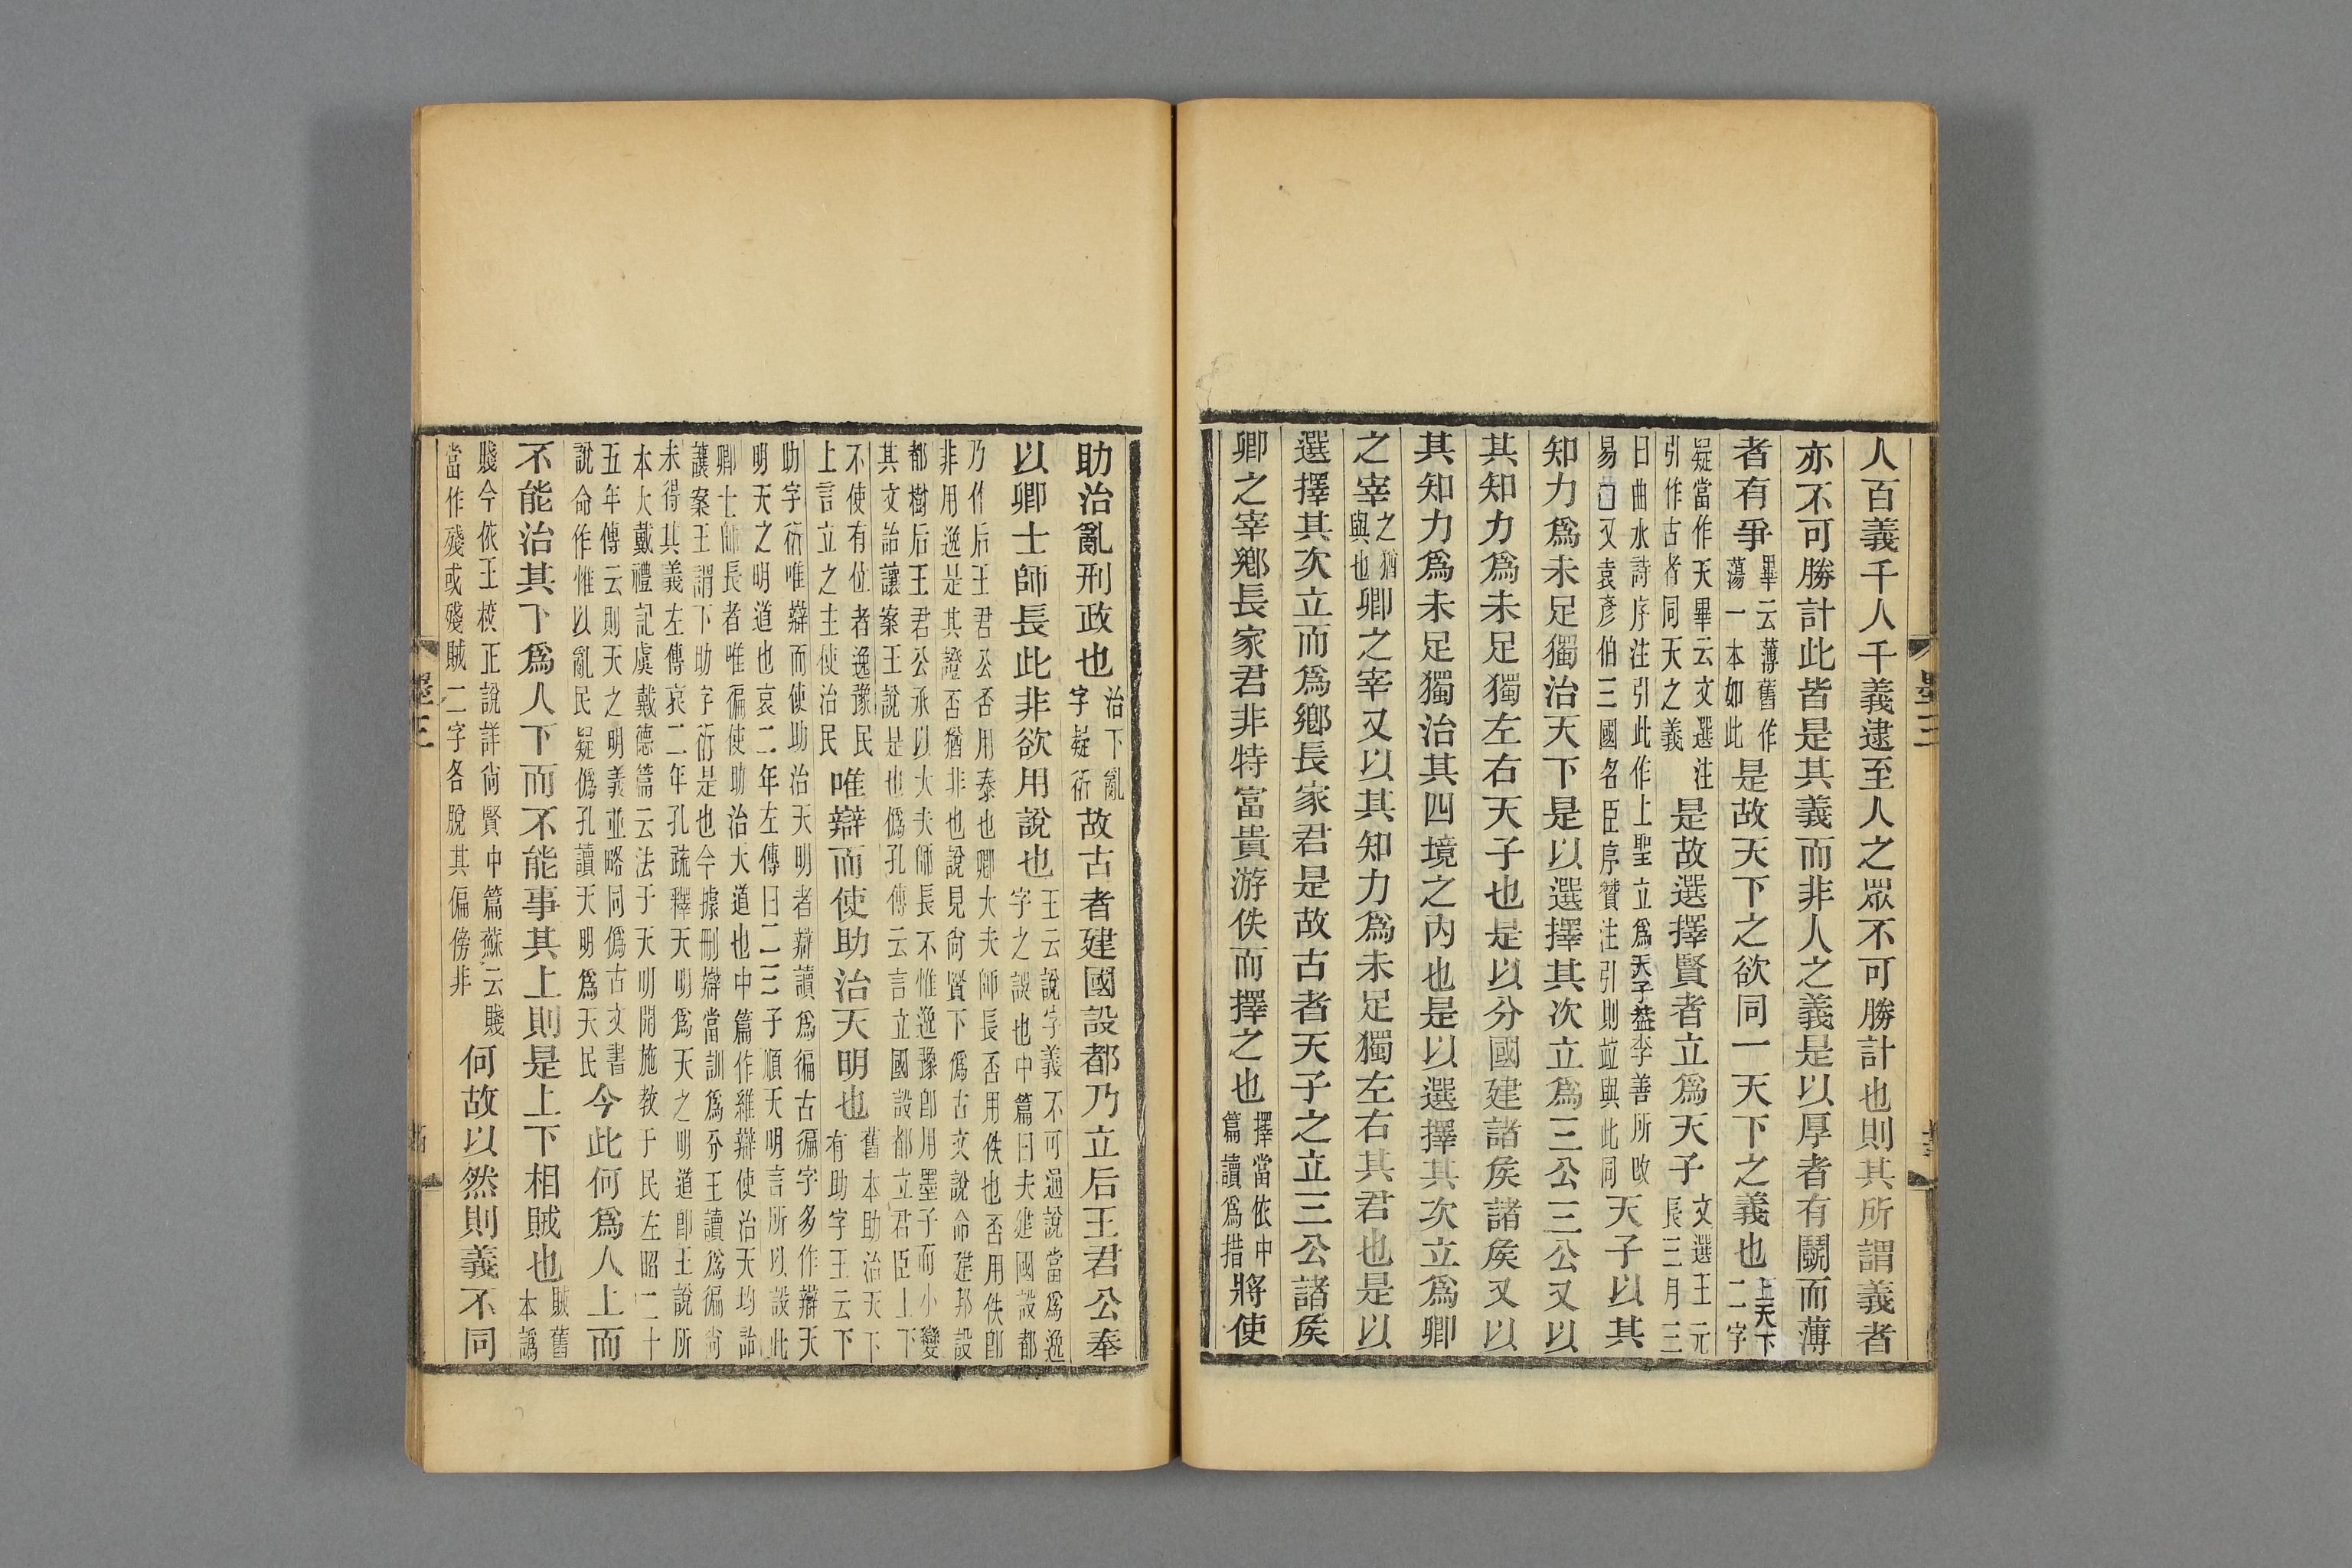 人百義千人千義逮至人之眾不可勝計也則其所謂義者
亦不可勝計此皆是其義而非人之義是以厚者有鬬而薄
者有爭畢云薄舊作蕩一本如此是故天下之欲同一天下之義也上天下二字
疑當作天畢云文選注引作古者同天之義是故選擇賢者立爲天子文選王元長三月三
日曲水詩序注引此作上聖立爲天子益李善所改易□又袁彥伯三國名臣序贊注引則竝與此同天子以其
知力爲未足獨治天下是以選擇其次立爲三公三公又以
其知力爲未足獨左右天子也是以分國建諸矦諸矦又以
其知力爲未足獨治其四境之內也是以選擇其次立爲卿
之宰之猶與也卿之宰又以其知力爲未足獨左右其君也是以
選擇其次立而爲鄉長家君是故古者天子之立三公諸矦
卿之宰鄉長家君非特富貴游佚而擇之也擇當依中篇讀爲措將使
助治亂刑政也治下亂字疑衍故古者建國設都乃立后王君公奉
以卿士師長此非欲用說也王云說字義不可通說當爲逸字之誤也中篇曰夫建國設都
乃作后王君公否用泰也卿大夫師長否用佚也否用佚卽非用逸是其證否猶非也說見尙賢下僞古文說命建邦設
都樹后王君公承以大夫師長不惟逸豫卽用墨子而小變其文詒讓案王說是也僞孔傳云言立國設都立君臣上下
不使有位者逸豫民上言立之主使治民唯辯而使助治天明也舊本助治天下有助字王云下
助字衍唯辯而使助治天明者辯讀爲徧古徧字多作辯天明天之明道也哀二年左傳曰二三子順天明言所以設此
卿士師長者唯徧使助治大道也中篇作維辯使治天均詒讓案王謂下助字衍是也今據刪辯當訓爲分王讀爲徧尙
未得其義左傳哀二年孔疏釋天明爲天之明道卽王說所本大戴禮記虞戴德篇云法于天明開施教于民左昭二十
五年傳云則天之明義並略同僞古文書說命作惟以亂民疑僞孔讀天明爲天民今此何爲人上而
不能治其下爲人下而不能事其上則是上下相賊也賊舊本譌
賤今依王校正說詳尙賢中篇蘇云賤當作殘或殘賊二字各脫其偏傍非何故以然則義不同